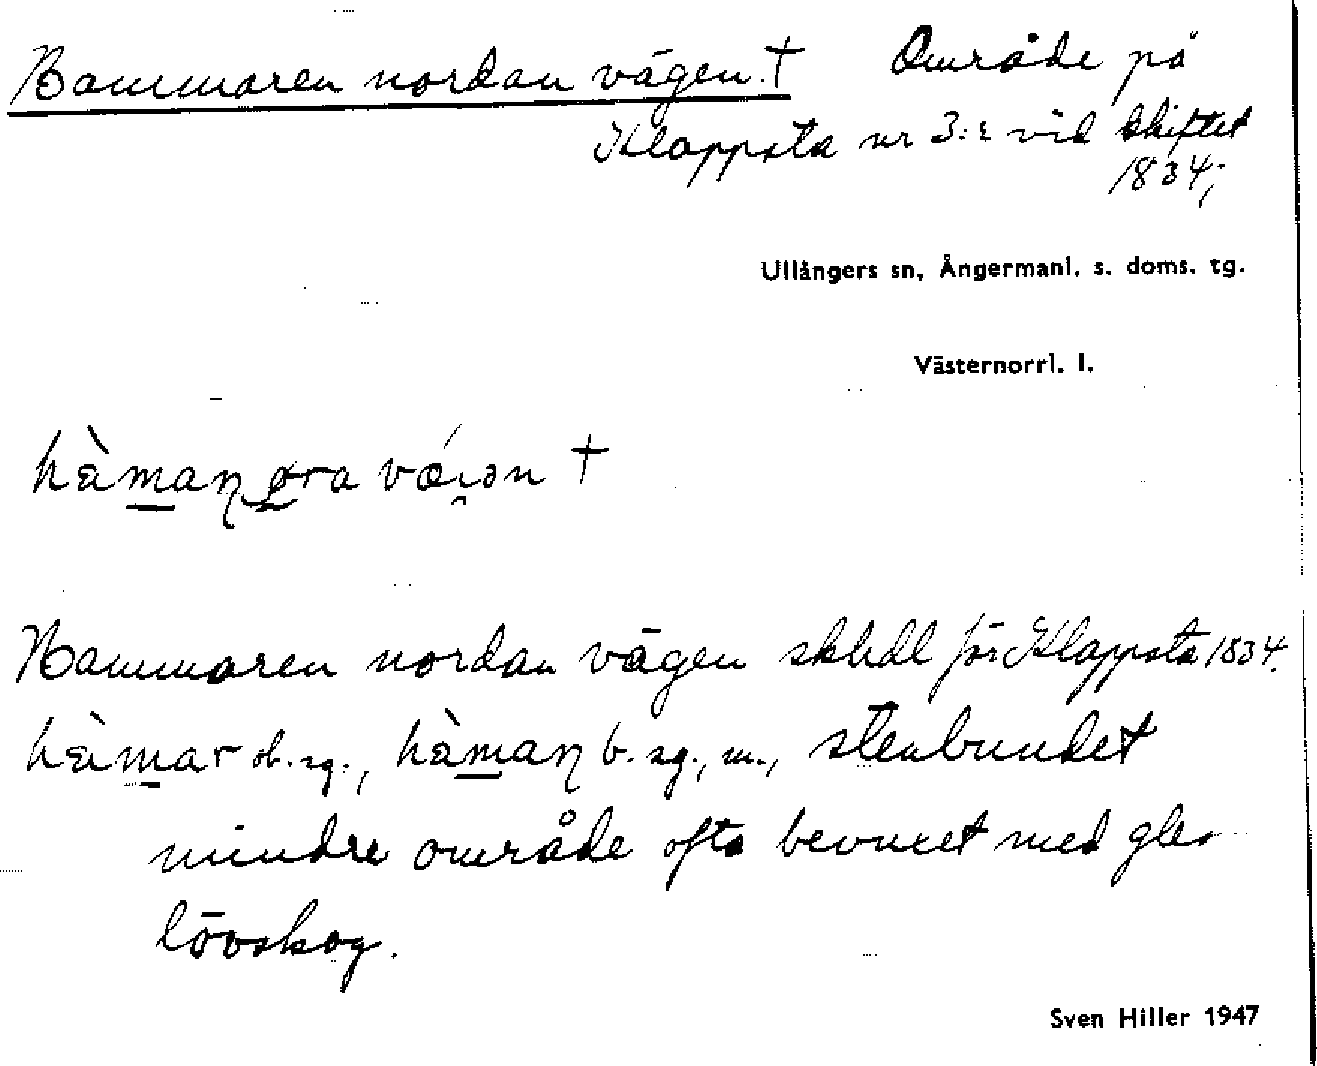 Hammaren nordan vägen. † Område på
Klappsta nr 3:2 vid skiftet
1834;
Ullångers sn, Ångermanl. s. doms. tg.
Västernorrl. l.
hàmaŋ ɷra vǽi̯ən †
Hammaren nordan vägen skhdl för Klappsta 1834.
hàmar ob. sg., hàmaŋ b. sg., m., stenbundet
mindre område ofta bevuxet med gles
lövskog.
Sven Hiller 1947